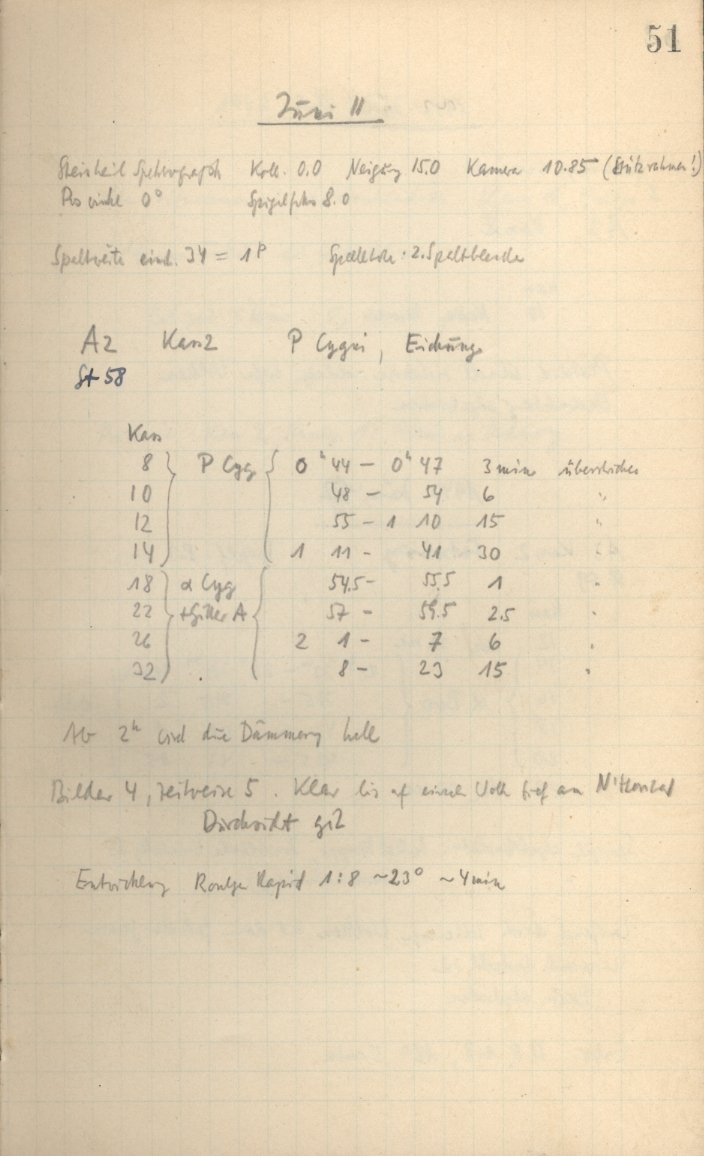 51
Juni 11
Steinheil Spektrograph Koll. 0.0 Neigung 15.0 Kamera 10.85 (Stützrahmen!)
Pos winkel 0° Spiegelfokus 8.0
Spaltweite eind. 34 = 1ᵖ 2. Spaltblende
A2 Kass2 P Cygni, Eichung
St 58
Kass
8 P Cyg 0ʰ 44 – 0ʰ 47 3 min
10 48 – 54 6 "
12 55 – 1 10 15 "
14 1 11 – 41 30
18 α Cyg 54.5 – 55.5 1 "
22 + Gitter A 57 – 59.5 2.5 "
26 2 1 – 7 6 "
32 8 – 23 15 "
Ab 2ʰ wird die Dämmerung hell
Bilder 4, zeitweise 5. Klar bis auf tief am N'Horizont
Durchsicht gut
Entwicklung Rapid 1:8 ~23° ~4 min